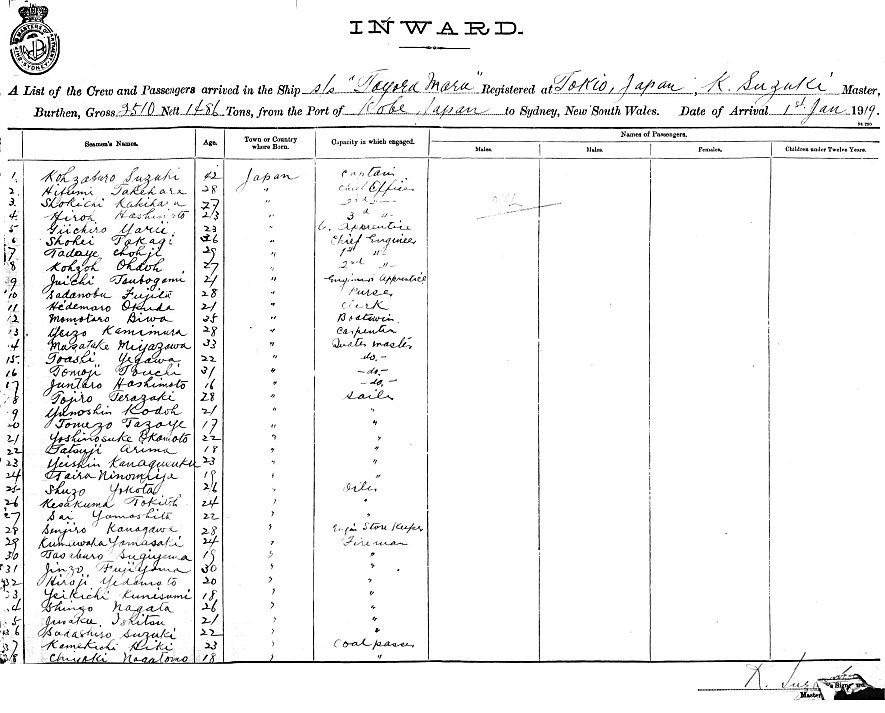 INWARD.
A List of the Crew and Passengers arrived in the Ship s/s "Toyora Maru" Registered at Tokio, Japan, K. Suzuki Master,
Burthen, Gross 2510 Nett 1486 Tons, from the Port of Kobe, Japan to Sydney, New South Wales. Date of Arrival 1st Jan 1919.
Names of Passengers.
Seamen's Names. Age. Town or Country where Born. Capacity in which engaged. Males. Males. Females. Children under Twelve Years.
1. Kohzaburo Suzuki 42 Japan Captain
2. Hifumi Takehara 28 " Chief Officer
3. Shokichi Kakihara 27 " 2nd "
4. Hiroh Hashimoto 23 " 3rd "
5 Giichiro Yarii 23 " Apprentice
6 Shohei Takagi 36 " Chief Engineer
7 Tadaye Chohji 29 " 1st "
8 Kohzoh Ohdoh 27 " 2nd "
9 Juichi Tsubogami 21 " Engineer Apprentice
10 Sadanobu Fujita 28 " Purser
11 Hedemaro Okuda 21 " Clerk
12 Momotaro Biwa 35 " Boatswin
13. Yuzo Kamimura 28 " Carpenter
4 Masatake Miyazawa 33 " Quater master
15. Toashi Yegawa 22 " -do.-
16 Tomoji Touchi 31 " -do.-
17 Juntaro Hashimoto 16 " -do.-
8 Tojiro Terazaki 28 " Sailor
9 Yunoshin Kodoh 21 " "
20 Tomezo Tazoye 17 " "
21 Yoshinosuke Okamoto 22 " "
22 Tatsuji Arima 18 " "
23 Yeishin 23 " "
24 Taira Ninomiya 19 " "
25 Shuzo Yokota 26 " Oiler
26 Kesakuma Tokitoh 24 " "
27 Sai Yamashita 22 " "
28 Senjiro Kanagawa 28 " Engin Store Keeper
29 Kumawaka Yamasaki 24 " Fireman
30 Tasaburo Sugiyama 19 " "
31 Jinzo Fujiyama 30 " "
32 Hiroji Yedamoto 20 " "
33 Yeikichi Kunisumi 18 " "
4 Shingo Nagata 26 " "
5 Jusaku Ishitsu 21 " "
36 Sadashiro Suzuki 22 " "
37 Kamekichi Hiki 23 " Coal passer
38 Chiyoki Nagatomo 18 " "
K. Suz
Master